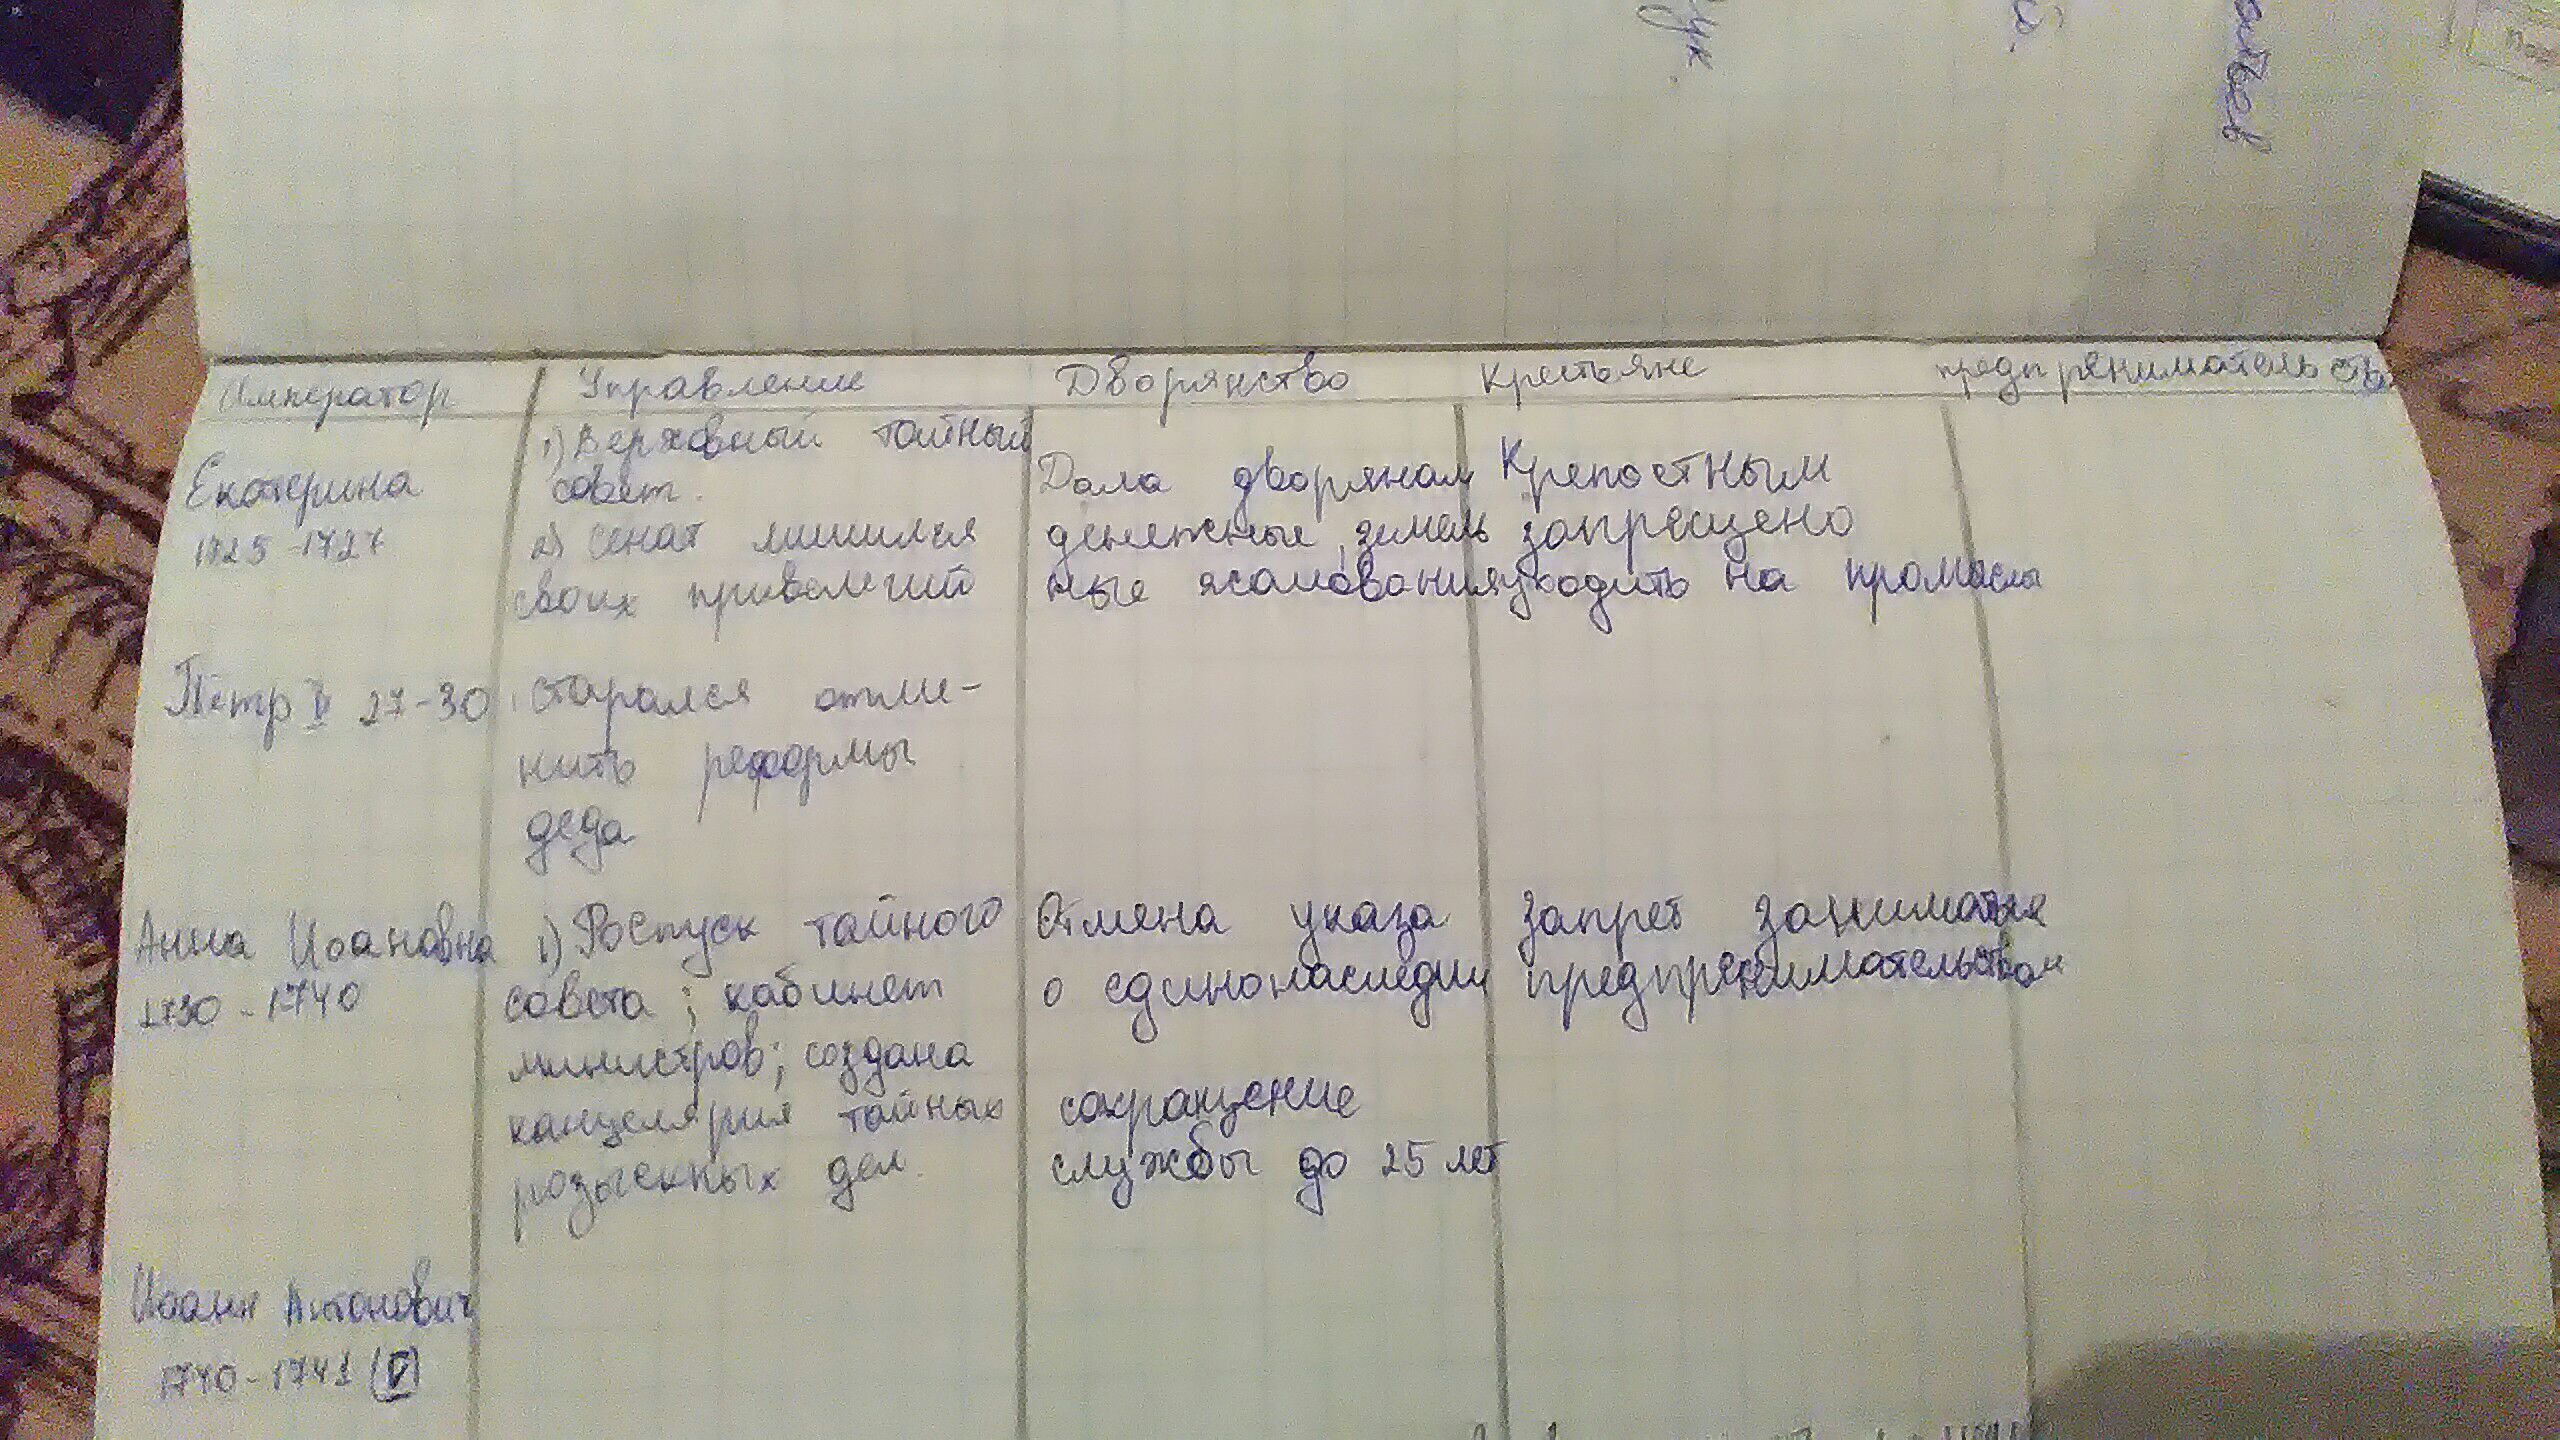 Император Управление Дворянство Крестьяне предпренимательств
Екатерина
1725-1727
1) Верховный тайный
совет.
2) Сенат лишился
своих привелегий
Дала дворянам
денежные, земель
ные жалования
Крепостным
запрещено
уходить на промыслы
Пётр II 27-30
старался отме-
нить реформы
деда
Анна Иоановна
1730-1740
1) Роспуск тайного
совета; кабинет
министров; создана
канцелярия тайных
розыскных дел.
Отмена указа
о единонаследии
сокращение
службы до 25 лет
запрет заниматся
предпренимательством
Иоанн Антонович
1740-1741 (V)